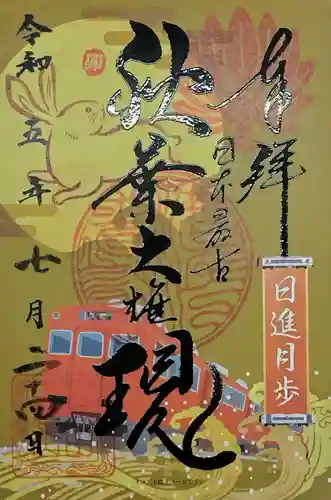 奉拝
日本最古
日進月歩
秋葉大権現
令和五年七月二十四日
卯